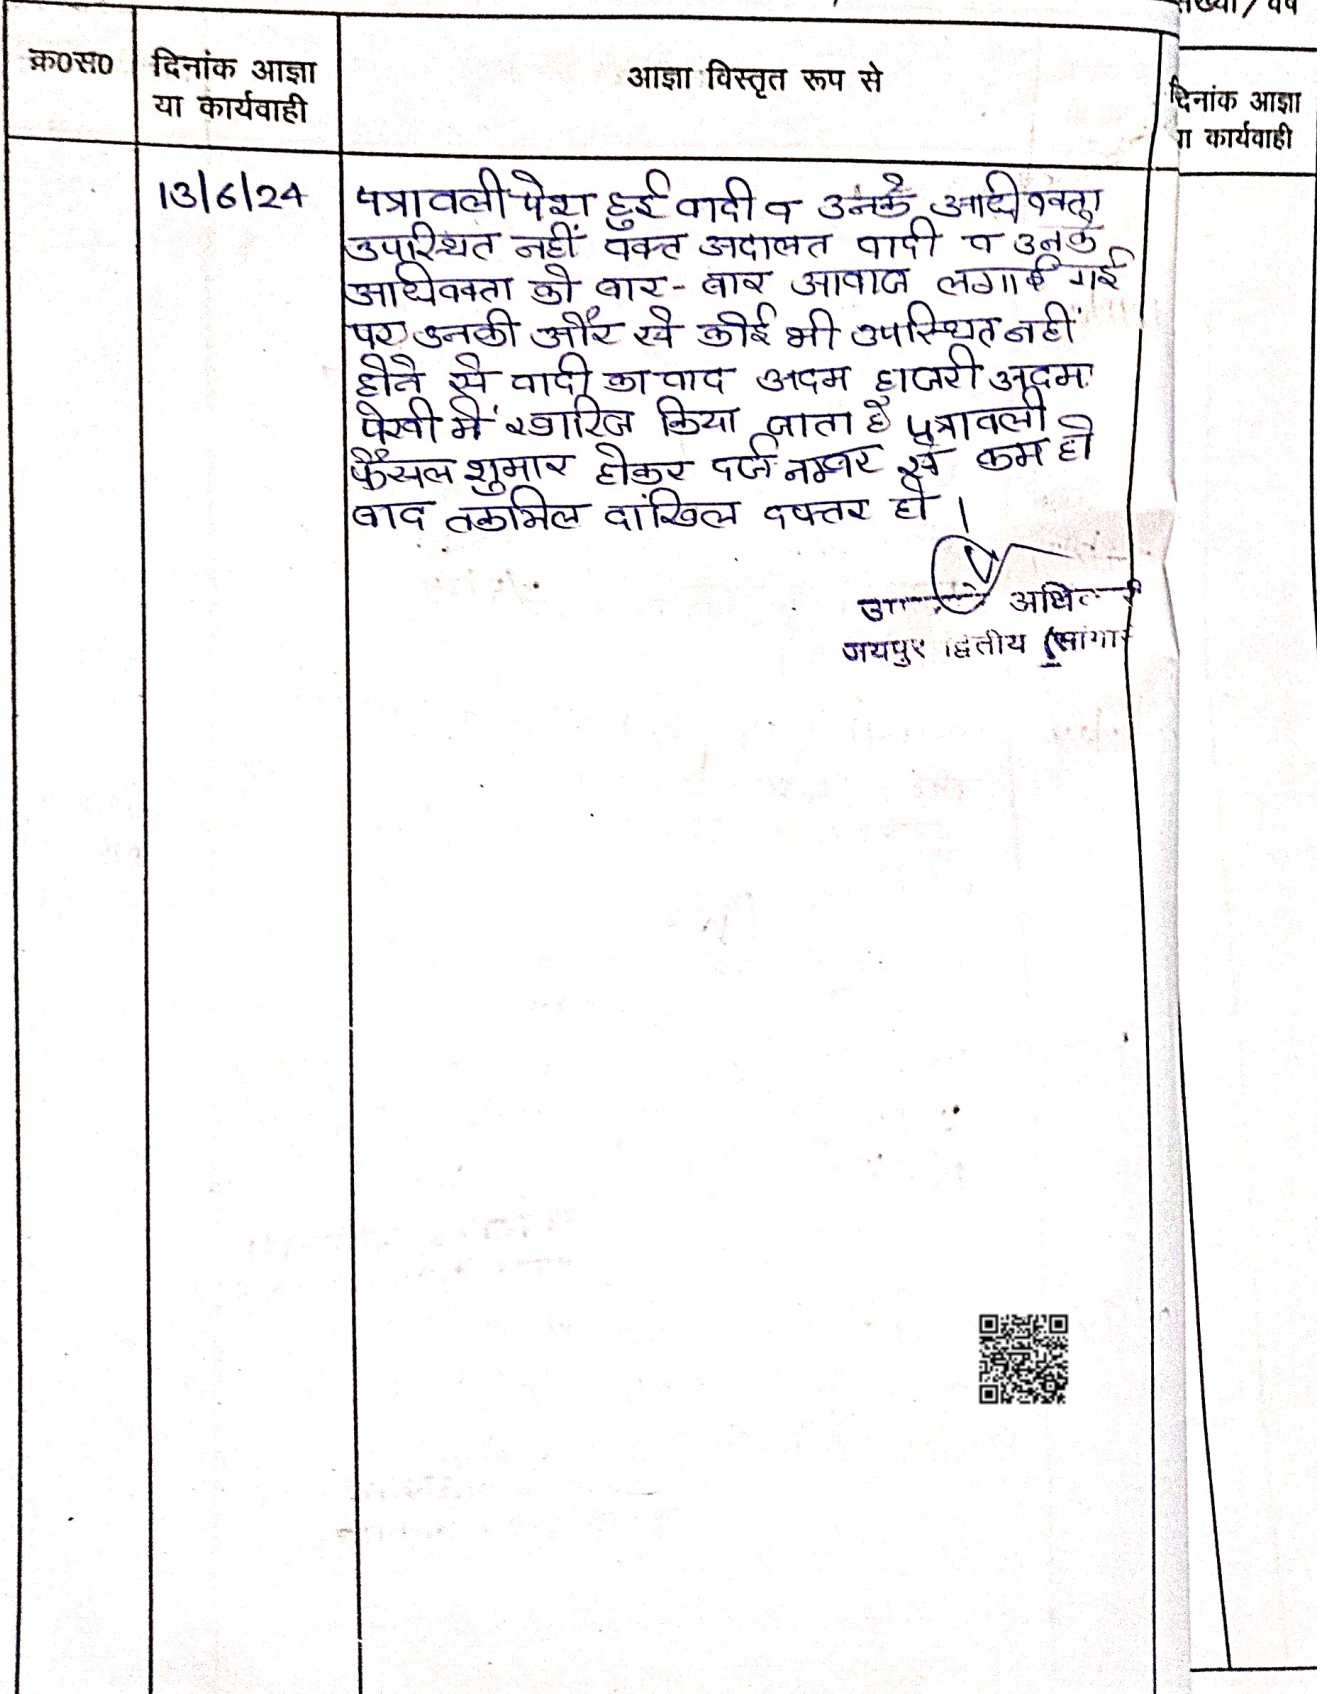 क्र०स०
दिनांक आज्ञा
या कार्यवाही
आज्ञा विस्तृत रूप से
दिनांक आज्ञा
या कार्यवाही
13/6/24
पत्रावली पेश हुई वादी व उनके अधिवक्ता
उपस्थित नहीं वक्त अदालत वादी व उनके
अधिवक्ता को बार-बार आवाज लगाई गई
पर उनकी और से कोई भी उपस्थित नहीं
होने से वादी का वाद अदम हाजरी अदम
पेरवी में खारिज किया जाता है पत्रावली
फैसल शुमार होकर दर्ज नम्बर से कम हो
बाद तकमिल दाखिल दफ्तर हो ।
जयपुर द्वितीय